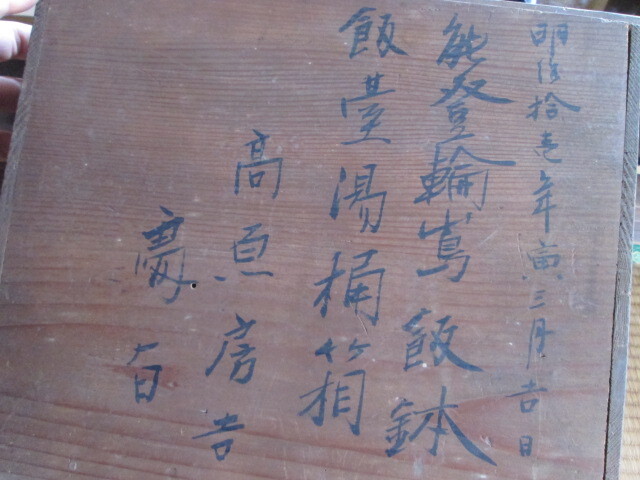 明治拾壱年寅三月吉日
能登輪嶌飯鉢
飯臺湯桶箱
高原房吉